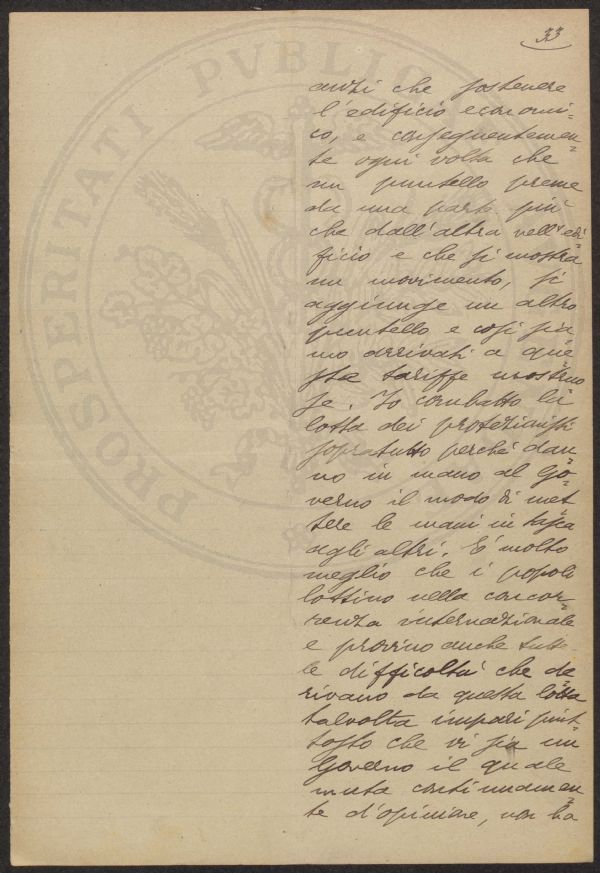 33
PROSPERITATI PVBLIC
anzi che sostenere
l'edificio economi=
co, e conseguentemen=
te ogni volta che
un puntello preme
da una parte più
che dall'altra nell'edi
ficio e che si mostra
un movimento, si
aggiunge un altro
puntello e così sia
mo arrivati a que
sta tariffe mostruo
se. Io combatto la
lotta dei protezionisti
sopratutto perché dan=
no in mano al Go=
verno il modo di met
tere le mani in tasca
agli altri. E' molto
meglio che i popoli
lottino nella concor=
renza internazionale
e provino anche tutte
le difficoltà che de
rivano da questa lotta
talvolta impari piut
tosto che vi sia un
Governo il quale
muta continuamen=
te d'opinione, non ha